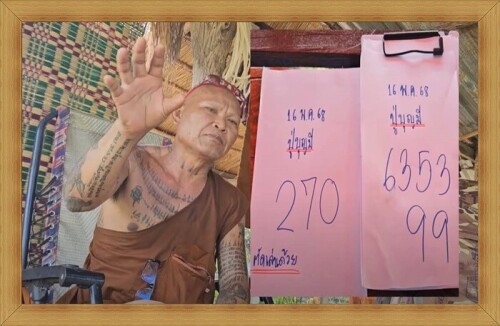 16 พ.ค 68
ปู่บุญมี
270
คัดเด่นด้วย
16 พ.ค 68
ปู่บุญมี
6353
99